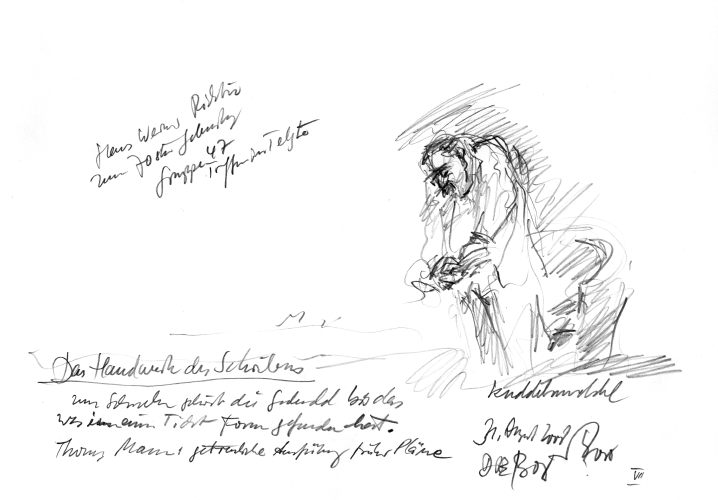 Hans Werner Richter
zum 70sten Geburtstag
Gruppe 47
Treffen in Telgte
Das Handwerk des Schreibens
zum Schreiben gehört die Geduld bis das
was in einem Form gefunden hat.
Thomas Mann: getreuliche Ausführung früher Pläne
Kuddelmuddel
31. August
VII